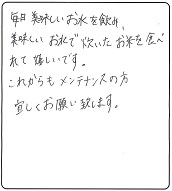 毎日美味しいお水を飲み、
美味しいお水で炊いたお米を食べ
れて嬉しいです。
これからもメンテナンスの方
宜しくお願い致します。